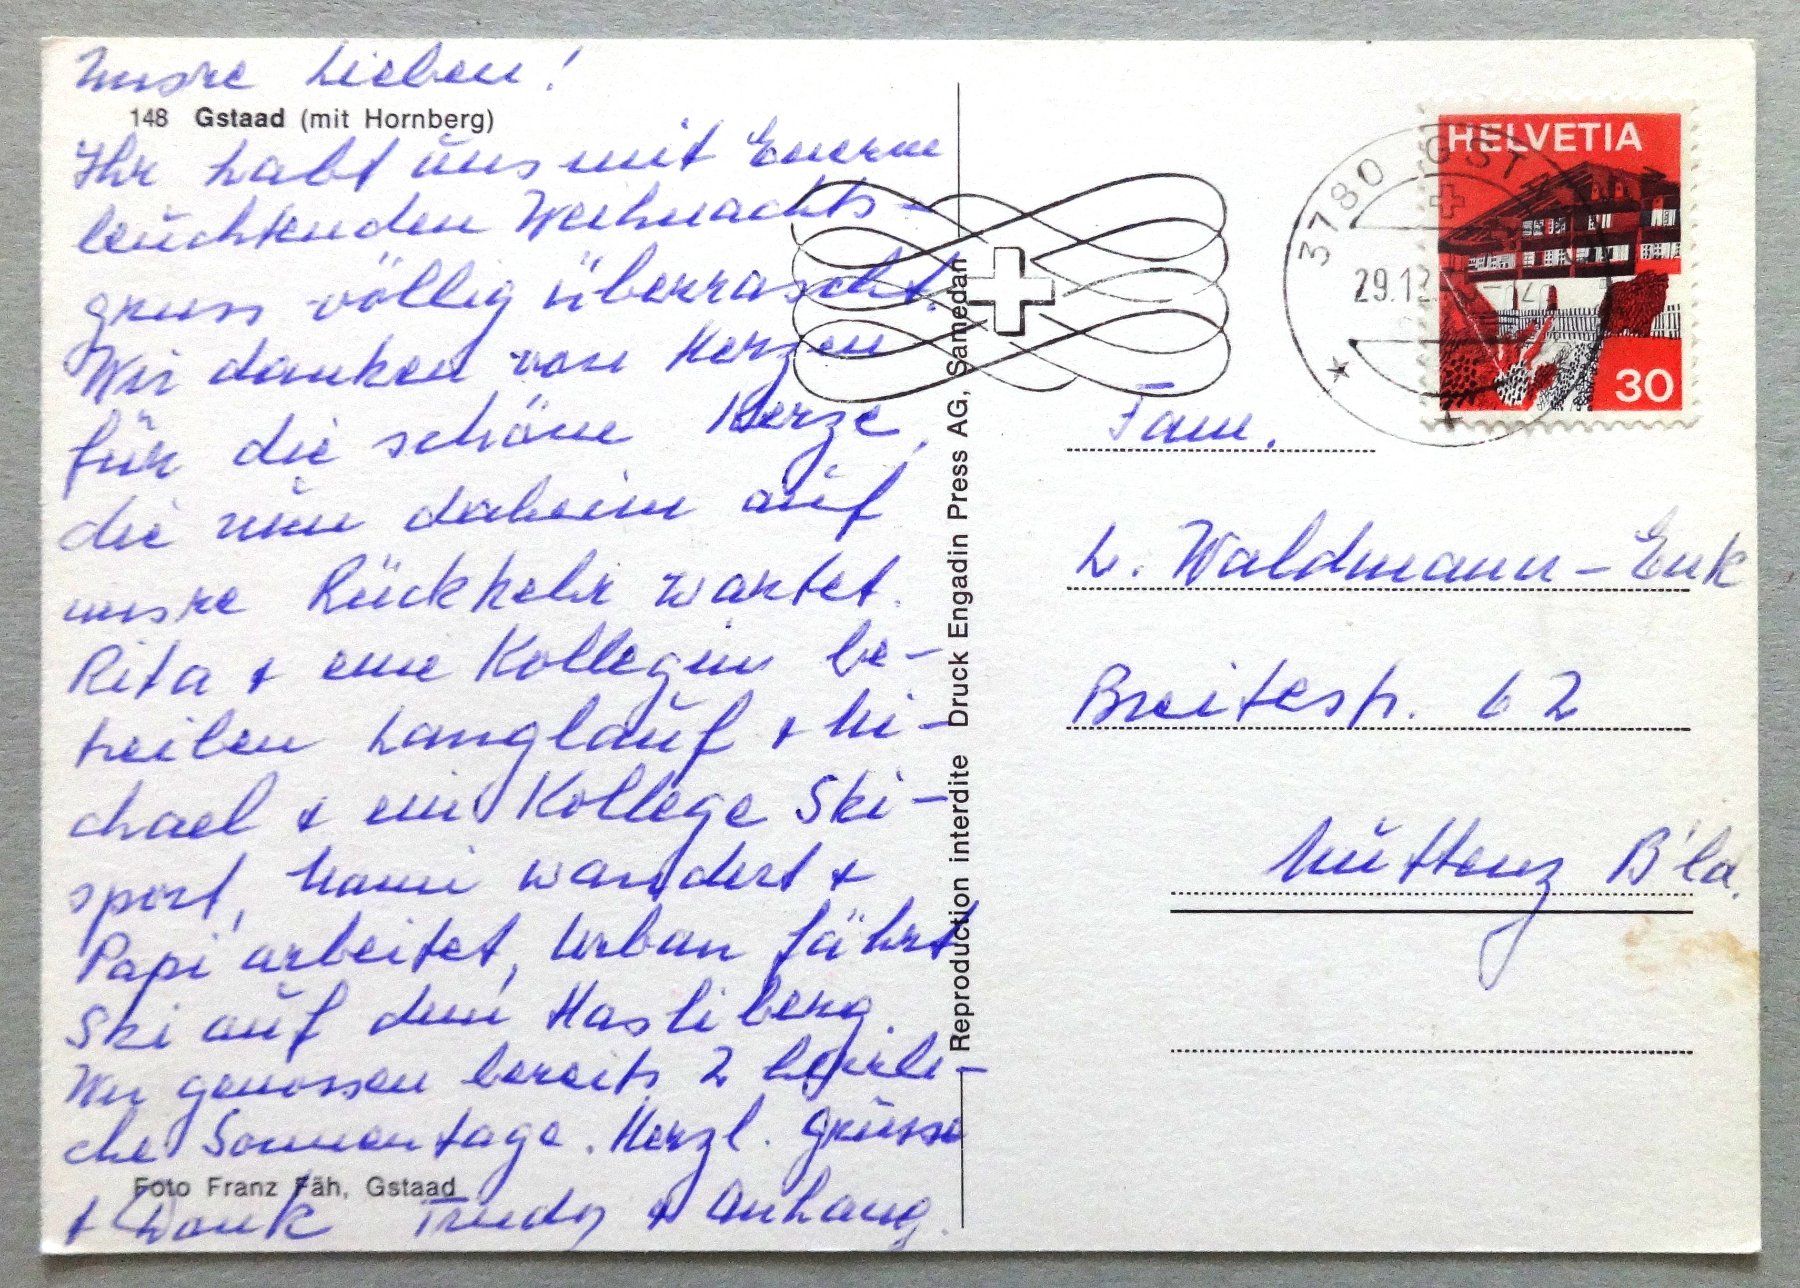 Unsre Lieben!
148 Gstaad (mit Hornberg)
Ihr habt uns mit Euerm
leuchtenden Weihnachts-
gruss völlig überrascht.
Wir danken von Herzen
für die schöne Kerze,
die nun daheim auf
unsre Rückkehr wartet.
Rita + eine Kollegin be-
treiben Langlauf + Mi-
chael + ein Kollege Ski-
sport, Mami wandert +
Papi arbeitet, Urban fährt
Ski auf dem Hasliberg.
Wir genossen bereits 2 herrli-
che Sonnentage. Herzl. Grüsse
+ Dank Trudy + Anhang.
Foto Franz Fäh, Gstaad
Reproduction interdite Druck Engadin Press AG, Samedan
3780 GST
29.12.
HELVETIA
30
Fam.
L. Waldmann-Enk
Breitestr. 62
Muttenz B'ld.